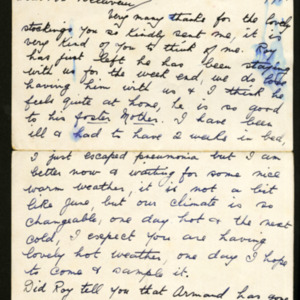 Very many thanks for the lovely
stockings you so kindly sent me, it is
very kind of you to think of me. Roy
has just left he has been staying
with us for the week end, we do like
having him with us & I think he
feels quite at home, he is so good
to his foster Mother. I have been
ill & had to have 2 weeks in bed,
I just escaped pneumonia but I am
better now & waiting for some nice
warm weather, it is not a bit
like June, but our climate is so
changeable, one day hot & the next
cold, I expect you are having
lovely hot weather, one day I hope
to come & sample it.
Did Roy tell you that Armand has gone